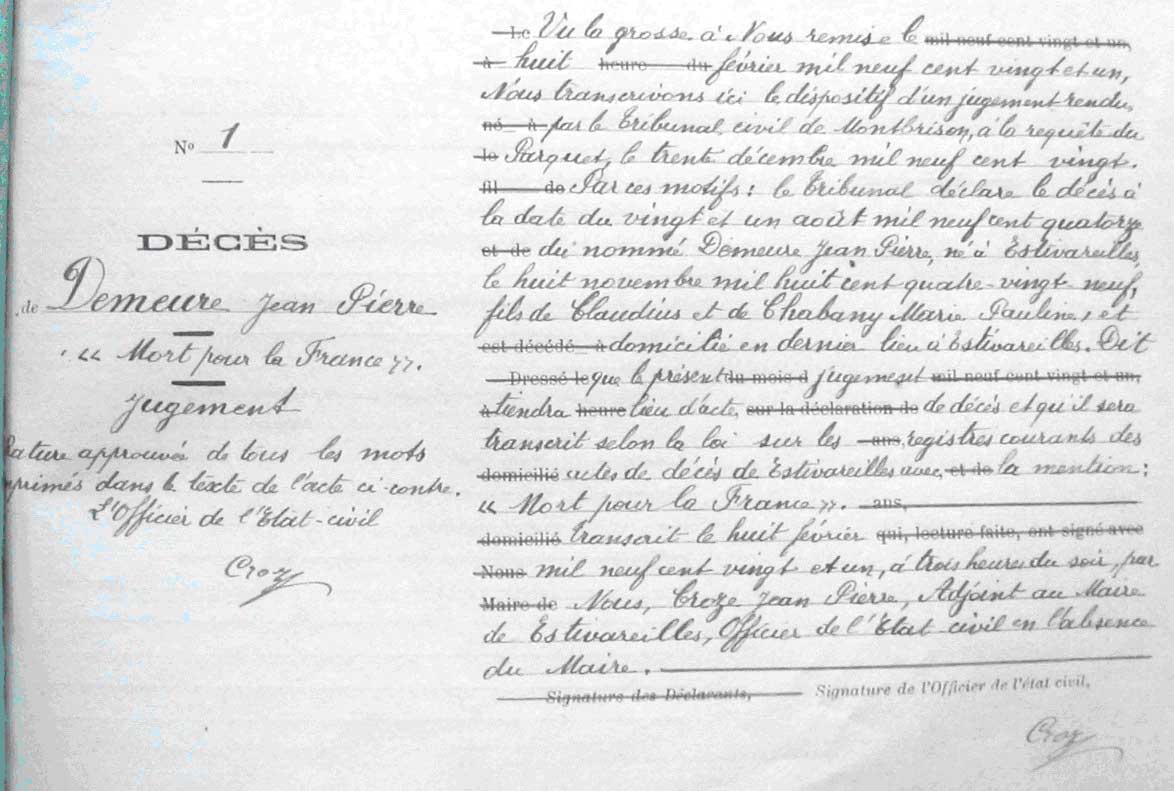 N° 1
DÉCÈS
de Demeure Jean Pierre
« Mort pour la France ».
Jugement
Rature approuvée de tous les mots
imprimés dans le texte de l'acte ci-contre.
L'Officier de l'Etat-civil
Croze
Le Vu la grosse à Nous remise le mil neuf cent vingt et un,
à huit heure du février mil neuf cent vingt et un,
Nous transcrivons ici le dispositif d'un jugement rendu
né à par le Tribunal civil de Montbrison, à la requête du
le Parquet, le trente décembre mil neuf cent vingt.
fil de Par ces motifs : le Tribunal déclare le décès à
la date du vingt et un août mil neuf cent quatorze
et de du nommé Demeure Jean Pierre, né à Estivareilles,
le huit novembre mil huit cent quatre-vingt neuf,
fils de Claudius et de Chabany Marie Pauline, et
est décédé à domicilié en dernier lieu à Estivareilles. Dit
Dressé le que le présent du mois d jugement mil neuf cent vingt et un,
à tiendra heure lieu d'acte, sur la déclaration de de décès et qu'il sera
transcrit selon la loi sur les ans, registres courants des
domicilié actes de décès de Estivareilles avec, et de la mention :
« Mort pour la France ». ans,
domicilié Transcrit le huit février qui, lecture faite, ont signé avec
Nous mil neuf cent vingt et un, à trois heures du soir, par
Maire de Nous, Croze Jean Pierre, Adjoint au Maire
de Estivareilles, Officier de l'Etat-civil en l'absence
du Maire.
Signature des Déclarants, Signature de l'Officier de l'état civil,
Croze